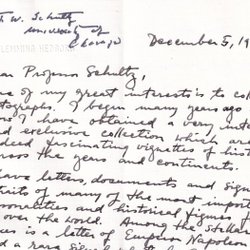 W. Schultz
University of
Chicago
December 5, 19
ar Professor Schultz,
ne of my great interests is to col
tographs. I began many years ago
I have obtained a very inte
d exclusive collection which are
deed fascinating vignettes of his
ross the years and continents.
have letters, documents and sign
raits of many of the most import
rsonalities and historical figures f
over the world. Among the stella
es is a letter of Emperor Napole
d a rare